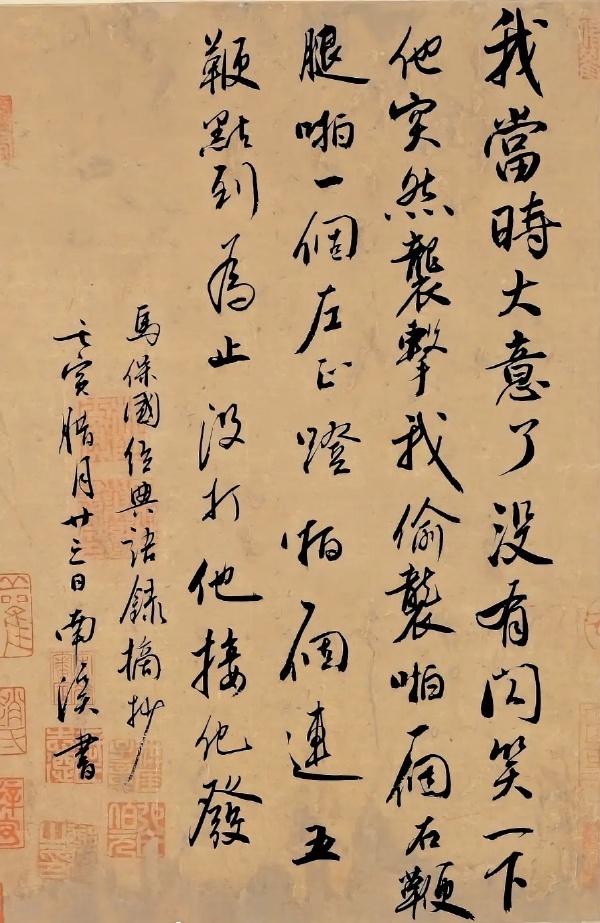 我當時大意了没有閃笑一下
他突然襲擊我偷襲啪一個右鞭
腿啪一個左正蹬啪一個連五
鞭點到為止没打他接化發
馬保國經典語録摘抄
壬寅腊月廿三日南溪書